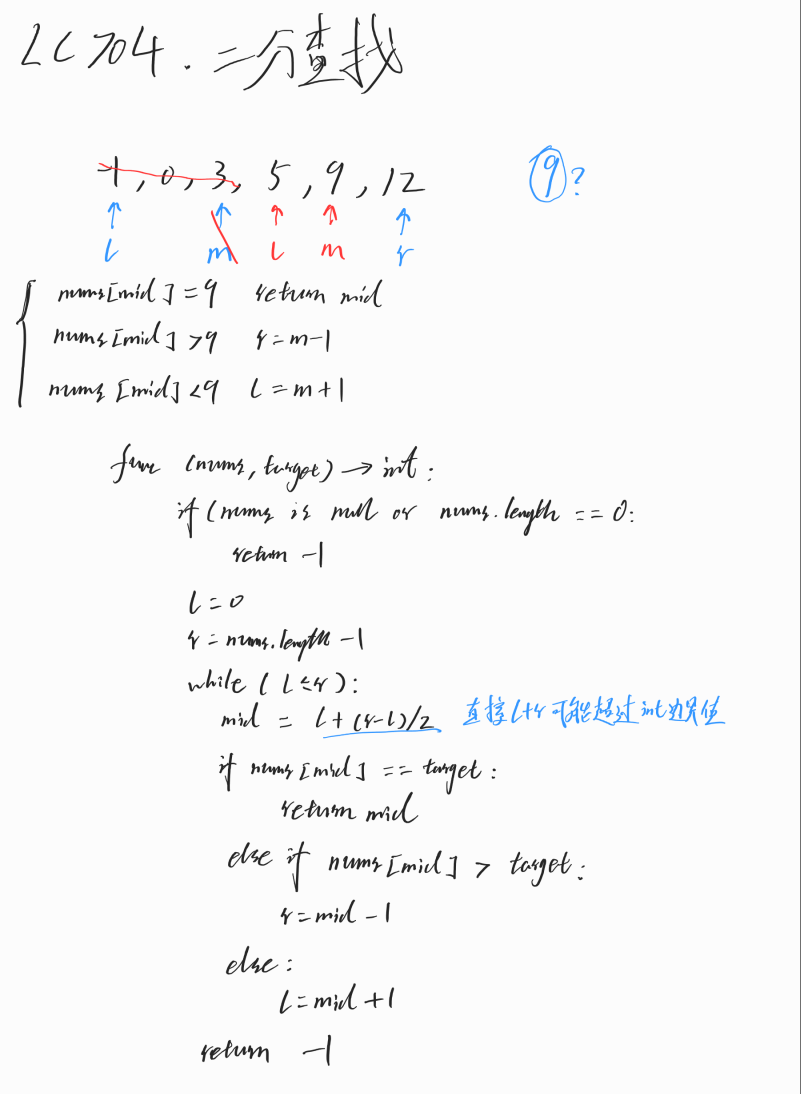 LC704. 二分查找
-1, 0, 3, 5, 9, 12 9?
l m l m r
nums[mid] = 9 return mid
nums[mid] > 9 r = m-1
nums[mid] < 9 l = m+1
func (nums, target) → int:
if (nums is null or nums.length == 0:
return -1
l = 0
r = nums.length -1
while ( l ≤ r ):
mid = l + (r-l)/2 直接l+r可能超过int边界值
if nums[mid] == target:
return mid
else if nums[mid] > target:
r = mid -1
else:
l = mid +1
return -1